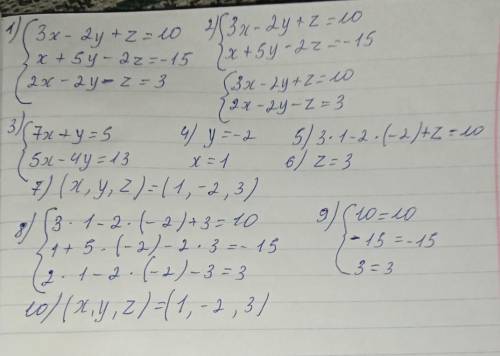 1) { 3x - 2y + z = 10
x + 5y - 2z = -15
2x - 2y - z = 3
2) { 3x - 2y + z = 10
x + 5y - 2z = -15
{ 3x - 2y + z = 10
2x - 2y - z = 3
3) { 7x + y = 5
5x - 4y = 13
4) y = -2
x = 1
5) 3 · 1 - 2 · (-2) + z = 10
6) z = 3
7) (x, y, z) = (1, -2, 3)
8) { 3 · 1 - 2 · (-2) + 3 = 10
1 + 5 · (-2) - 2 · 3 = -15
2 · 1 - 2 · (-2) - 3 = 3
9) { 10 = 10
-15 = -15
3 = 3
10) (x, y, z) = (1, -2, 3)